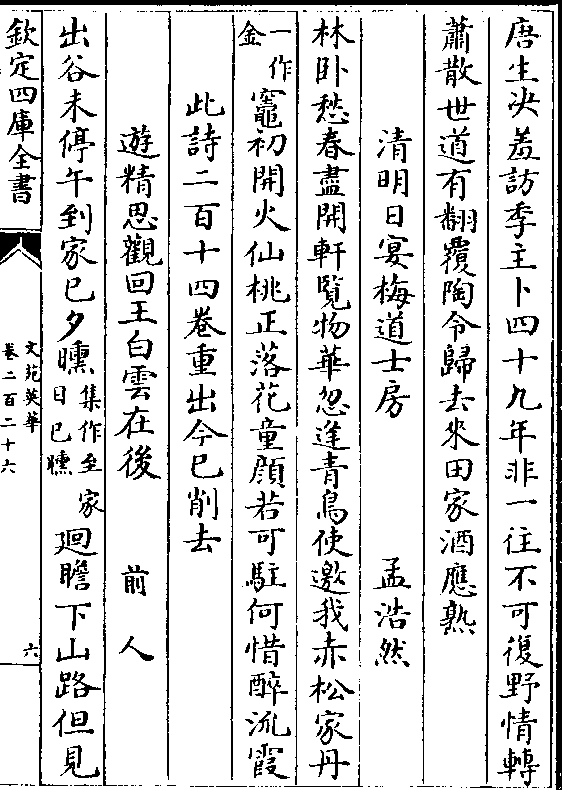 唐生决羞訪季主卜四十九年非一往不可復野情轉
蕭散世道有翻覆陶令歸去来田家酒應熟
清明日宴梅道士房　孟浩然
林卧愁春盡開軒覧物華忽逢青鳥使邀我赤松家丹
一作金竈初開火仙桃正落花童顔若可駐何惜醉流霞
此詩二百十四卷重出今已削去
遊精思觀回王白雲在後　前人
出谷未停午到家已夕曛集作至家日已曛廻瞻下山路但見
欽定四庫全書
文苑英華
卷二百二十六
六